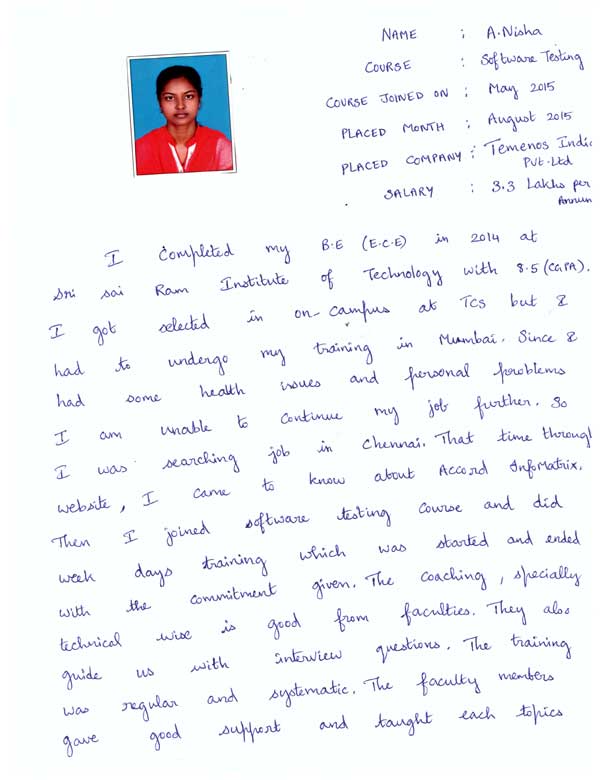 NAME : A.Nisha
COURSE : Software Testing
COURSE JOINED ON : May 2015
PLACED MONTH : August 2015
PLACED COMPANY : Temenos India
Pvt.Ltd
SALARY : 3.3 Lakhs per
Annum
I completed my B.E (E.C.E) in 2014 at
Sri Sai Ram Institute of Technology with 8.5 (CGPA).
I got selected in on-campus at TCS but I
had to undergo my training in Mumbai. Since I
had some health issues and personal problems
I am unable to continue my job further. So
I was searching job in Chennai. That time through
website, I came to know about Accord InfoMatrix.
Then I joined software testing course and did
week days training which was started and ended
with the commitment given. The coaching, specially
technical wise is good from faculties. They also
guide us with interview questions. The training
was regular and systematic. The faculty members
gave good support and taught each topics